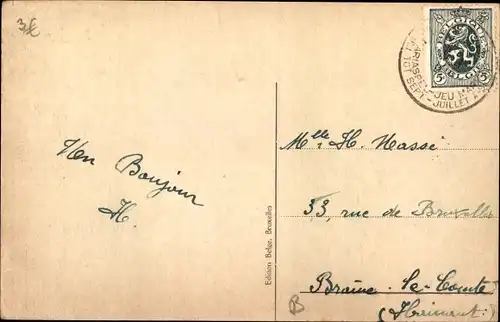 3€
BELGIQUE
5 5
BELGIË
JEU
SEPT - JUILLET
Mlle H. Massé
Un Bonjour
H.
33, rue de Bruxelles
Edition Belge, Bruxelles
Braine-Le-Comte
(Hainaut)
B